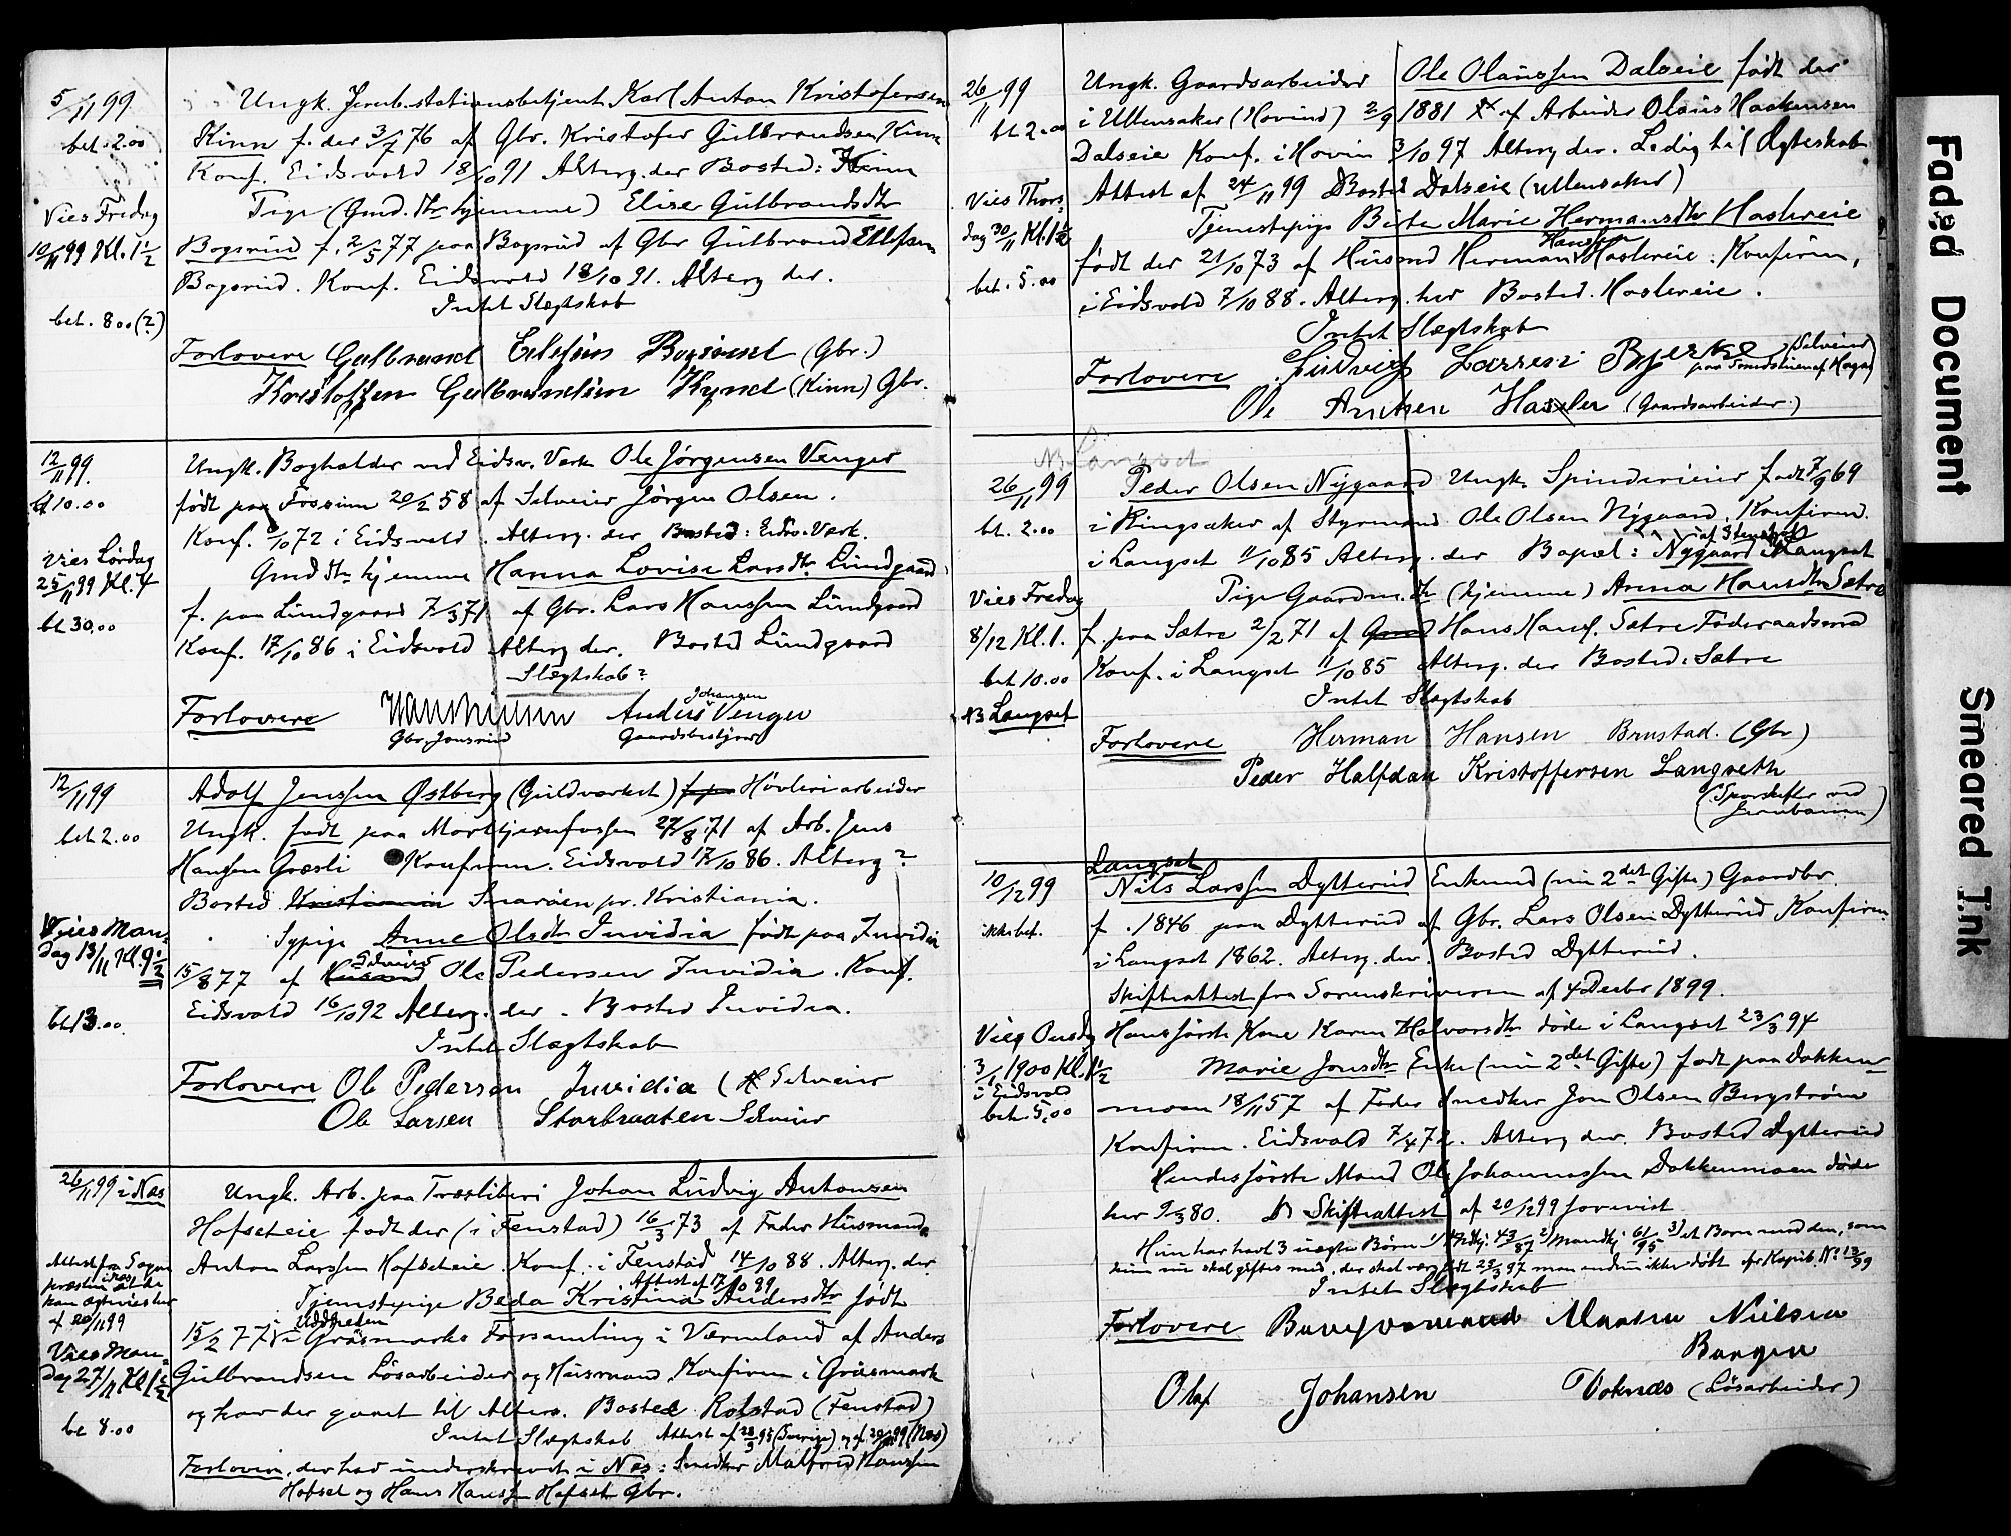 5/11 99
bet. 2.00
Vies Fredag
10/11 99 Kl. 1 1/2
bet. 8.00 (?)
Ungk. Jernb.stationsbetjent Karl Anton Kristofersen
Kinn f. der 3/7 76 af Gbr. Kristofer Gulbrandsen Kinn
Konf. Eidsvold 18/10 91 Alterg. der Bosted: Kinn
Pige (Gmd. dtr hjemme) Elise Gulbrandsdtr
Bogsrud f. 2/5 77 paa Bogsrud af Gbr Gulbrand Ellefsen
Bogsrud. Konf. Eidsvold 18/10 91. Alterg der.
Intet Slægtskab
Forlovere Gulbrand Ellefsen Bogsrud (Gbr.)
Kristoffer Gulbrandsen Kynd (Kinn) Gbr.
12/11 99.
bt 10.00
Vies Lørdag
25/11 99 Kl. 4
bt 30.00
Ungk. Bogholder ved Eidsv. Værk Ole Jørgensen Venger
født paa Fossum 20/2 58 af Selveier Jørgen Olsen.
Konf. /10 72 i Eidsvold. Alterg. der Bosted: Eidsv. Værk.
Gmd dtr hjemme Hanna Lovise Larsdtr Lundgaard
f. paa Lundgaard 7/3 71 af Gbr. Lars Hanssen Lundgaard
Konf. 17/10 86 i Eidsvold Alterg der. Bosted Lundgaard
Slægtskab?
Johansen
Forlovere Anders Venger
Gbr. Jønsrud Gaardsbestyrer
12/11 99
bet 2.00
Vies Man-
dag 13/11 Kl. 9 1/2
bt 13.00.
Adolf Jenssen Østberg (Guldværket) Høvleriarbeider
Ungk. født paa Morttjernfossen 27/8 71 af Arb. Jens
Hansen Græsli Konfirm. Eidsvold 17/10 86. Alterg?
Bosted Kristiania Snarøen pr. Kristiania.
Sypige Anne Olsdtr Juvidia født paa Juvidia
Selveier
15/8 77 af Husmand Ole Pedersen Juvidia. Konf.
Eidsvold 16/10 92 Alterg. der. Bosted Juvidia.
Intet Slægtskab
Forlovere Ole Pedersen Juvidia ( Selveier
Ole Larsen Storbraaten Selveier
26/11 99 i Næs
Attest fra Sogne
præsten
kan ægtevies her
af 20/11 99
Vies Man-
dag 27/11 Kl 1 1/2
bt 8.00
Ungk. Arb. paa Træsliberi Johan Ludvig Antonsen
Hofseteie født der (i Fenstad) 16/3 73 af Fader Husmand
Anton Larssen Hofseteie. Konf. i Fenstad 14/10 88. Alterg. der.
Attest af 17/10 99
Tjenestepige Beda Kristina Andersdtr født
Uddheden
15/2 77 i Gräsmarks Forsamling i Värmland af Anders
Gulbrandsen Løsarbeider og Husmand Konfirm i Gräsmark
og har der gaaet til Alters. Bosted Rolstad (Fenstad)
Intet Slægtskab Attest af 28/3 98 (Sverige) og af 20/11 99 (Næs)
Forlovere, der har underskrevet i Næs: Smedker Malfred Hanssen
Hofset og Hans Hanssen Hofset Gbr.
26/11 99
bt 2.00
Vies Thors-
dag 30/11 Kl. 1 1/2
bet. 5.00
Ungk. Gaardsarbeider Ole Olaussen Dalseie født der
i Ullensaker (Hovind) 2/9 1881 af Arbeider Olaus Haakensen
Dalseie Konf. i Hovin 3/10 97 Alterg der. Ledig til Ægteskab
Attest af 24/11 99 Bosted Dalseie (Ullensaker)
Tjenestepige Berte Marie Hermansdtr Haslereie
Hanssen
født der 21/10 73 af Husmd Herman Haslereie. Konfirm.
i Eidsvold 7/10 88. Alterg. her Bosted. Haslereie.
Intet Slægtskab
Forlovere Ludvig Larsen Bjerke Selveier
Ole Antsen Hasler (Gaardsarbeider.)
NB Langset
26/11 99
bt. 2.00
Vies Fredag
8/12 Kl. 1.
bet 10.00
NB Langset
Peder Olsen Nygaard Ungk. Spinderieier født 7/9 69
i Ringsaker af Styrmand Ole Olsen Nygaard. Konfirm.
i Langset 11/10 85 Alterg. der Bopæl: Nygaard i Langset
Pige Gaardm. dtr (hjemme) Anna Hansdtr Sætre
f. paa Sætre 2/2 71 af Gmd Hans Hans. Sætre Føderaadsmd
Konf. i Langset 11/10 85 Alterg. der Bosted: Sætre
Intet Slægtskab
Forlovere Herman Hansen Brustad. (Gbr)
Peder Halfdan Kristoffersen Langseth
(Sporskifter ved
Jernbanen)
Langset
10/12 99
ikke bet.
Vies Onsdg
3/1 1900 Kl. 1 1/2
i Eidsvold
bet. 5.00
Nils Larssen Dytterud Enkemd (nu 2det Gifte) Gaardbr.
f. 1846 paa Dytterud af Gbr. Lars Olsen Dytterud Konfirm
i Langset 1862. Alterg. der. Bosted Dytterud.
Skifteattest fra Sorenskriveren af 4 Decbr 1899.
Hans første Kone Karen Halvorsdtr døde i Langset 23/3 94
Marie Jonsdtr Enke (nu 2det Gifte) født paa Dokken-
moen 18/11 57 af Fader Snedker Jon Olsen Bergstrøm
Konfirm. Eidsvold 7/4 72. Alterg der. Bosted Dytterud
Hendes første Mand Ole Johannessen Dokkenmoen døde
her 9/3 80. Skifteattest af 20/12 99 forevist
Hun har havt 3 uægte Børn 3) et Barn med den, som
hun nu skal giftes med, der skal være født 23/3 97 men endnu ikke døbt
Intet Slægtskab
Forlovere Nielsen
Bungen
Olaf Johansen Toknæs (Løsarbeider)
Faded Document
Smeared Ink